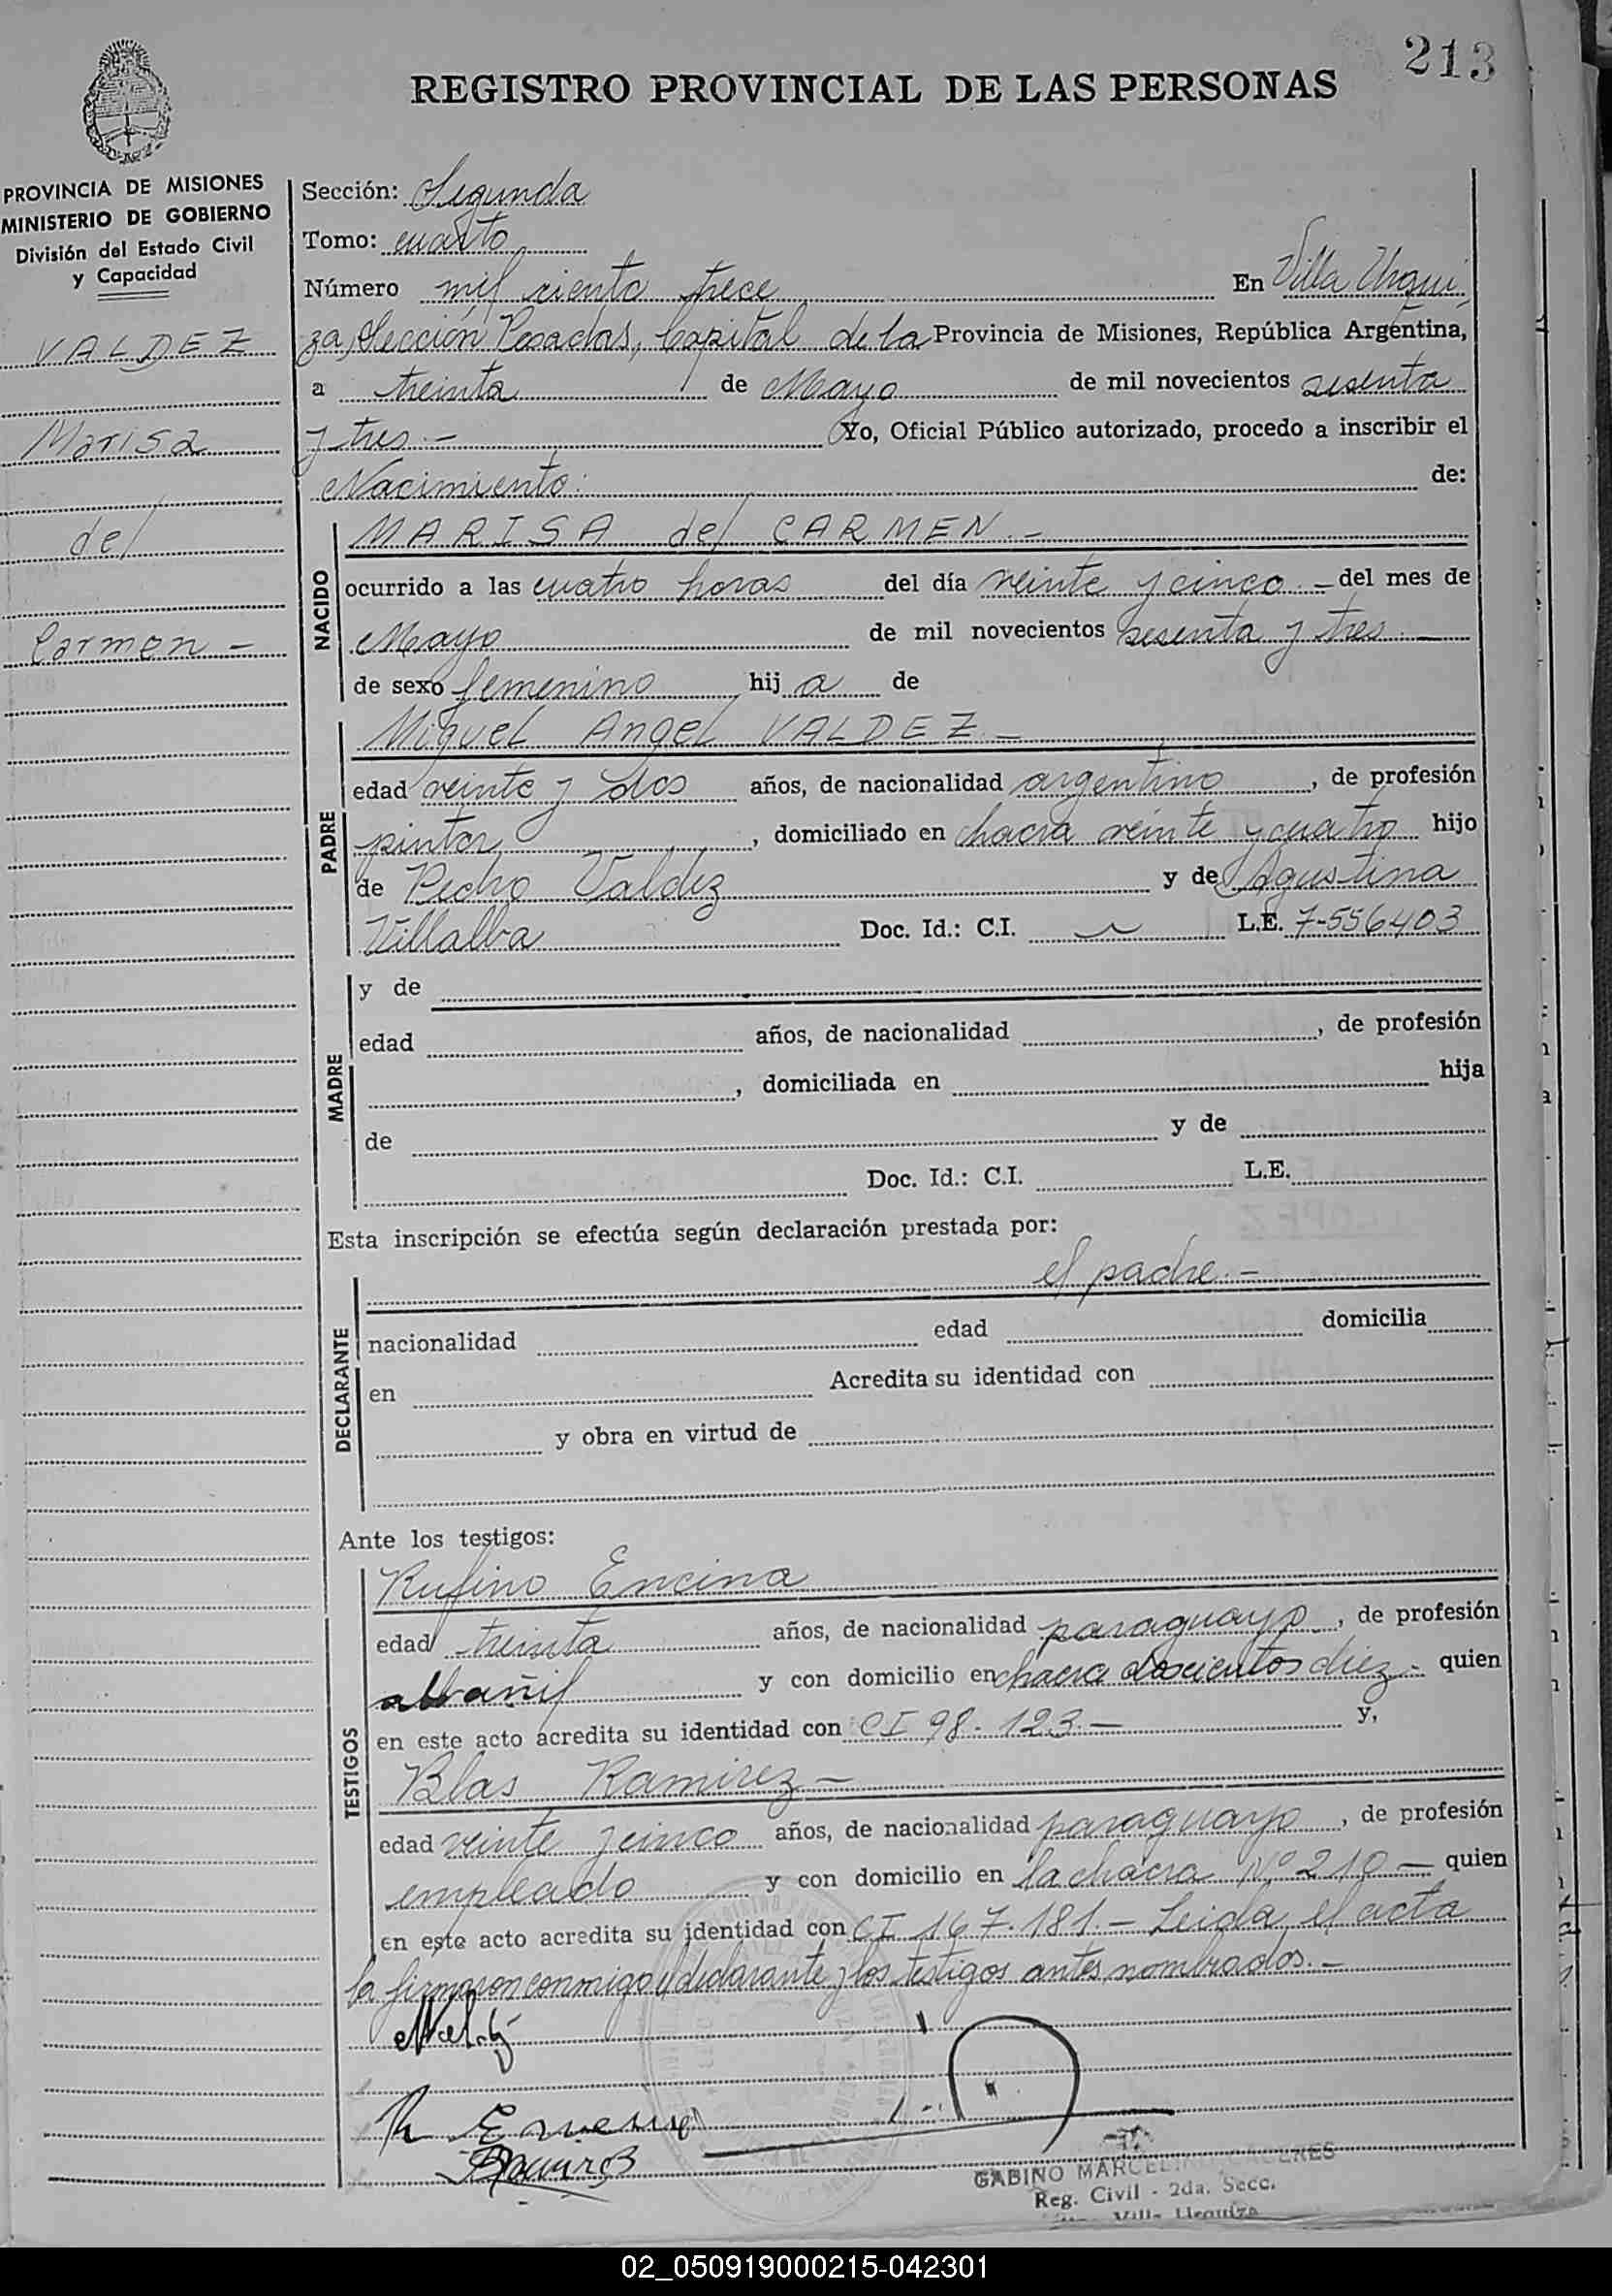 213
REGISTRO PROVINCIAL DE LAS PERSONAS
PROVINCIA DE MISIONES
MINISTERIO DE GOBIERNO
División del Estado Civil
y Capacidad
VALDEZ
Marisa
del
Carmen -
Sección: Segunda
Tomo: cuarto
Número mil ciento trece En Villa Urqui
za, Sección Posadas, Capital de la Provincia de Misiones, República Argentina,
a treinta de Mayo de mil novecientos sesenta
y tres.- Yo, Oficial Público autorizado, procedo a inscribir el
Nacimiento: de:
NACIDO
MARISA del CARMEN.-
ocurrido a las cuatro horas del día veinte y cinco.- del mes de
Mayo de mil novecientos sesenta y tres.-
de sexo femenino hij a de
PADRE
Miguel Angel VALDEZ.-
edad veinte y dos años, de nacionalidad argentino, de profesión
pintor, domiciliado en chacra veinte y cuatro hijo
de Pedro Valdez y de Agustina
Villalba Doc. Id.: C.I. L.E. 7-556403
MADRE
y de
edad años, de nacionalidad , de profesión
, domiciliada en hija
de y de
Doc. Id.: C.I. L.E.
Esta inscripción se efectúa según declaración prestada por:
el padre.-
DECLARANTE
nacionalidad edad domicilia
en Acredita su identidad con
y obra en virtud de
Ante los testigos:
TESTIGOS
Rufino Encina
edad treinta años, de nacionalidad paraguayo, de profesión
albañil y con domicilio en chacra doscientos diez - quien
en este acto acredita su identidad con CI 98.123.- y,
Blas Ramirez -
edad veinte y cinco años, de nacionalidad paraguayo, de profesión
empleado y con domicilio en la chacra Nº 210 - quien
en este acto acredita su identidad con CI 167.181.- Leida el acta
la firmaron conmigo el declarante y los testigos antes nombrados.-
GABINO MARCELINO CACERES
Reg. Civil - 2da. Secc.
Villa Urquiza
02_050919000215-042301